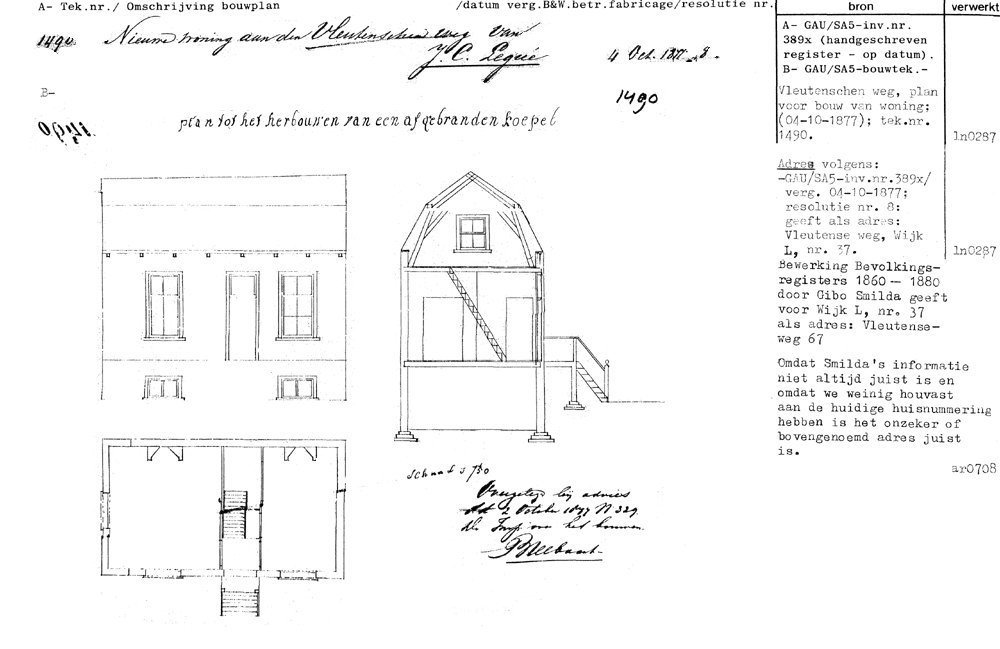 A- Tek.nr./ Omschrijving bouwplan /datum verg.B&W.betr.fabricage/resolutie nr.
bron verwerkt
1490 Nieuwe woning aan den Vleutenschen weg van
J. C. 4 Oct. 1877 8.
B-
1490
plan tot het herbouwen van een afgebranden koepel
A- GAU/SA5-inv.nr.
389x (handgeschreven
register - op datum).
B- GAU/SA5-bouwtek.-
Vleutenschen weg, plan
voor bouw van woning;
(04-10-1877); tek.nr.
1490. ln0287
Adres volgens:
-GAU/SA5-inv.nr.389x/
verg. 04-10-1877;
resolutie nr. 8:
geeft als adres:
Vleutense weg, Wijk
L, nr. 37. ln0287
Bewerking Bevolkings-
registers 1860 - 1880
door Gibo Smilda geeft
voor Wijk L, nr. 37
als adres: Vleutense-
weg 67
Omdat Smilda's informatie
niet altijd juist is en
omdat we weinig houvast
aan de huidige huisnummering
hebben is het onzeker of
bovengenoemd adres juist
is.
ar0708
Schaal
Overgelegd bij advies
2 October 1877 N 329
het bouwen